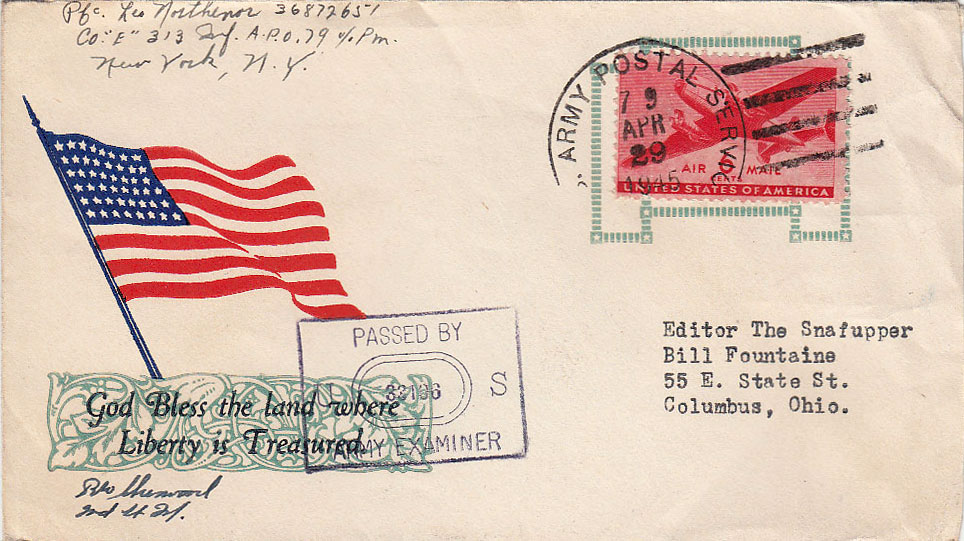 Pfc. Leo Northenor 36872651
Co. "E" 313 Inf. A.P.O. 79 % P.m.
New York, N.Y.
ARMY POSTAL SERVICE
79
APR
29
1945
AIR MAIL
CENTS
UNITED STATES OF AMERICA
PASSED BY
33106 S
ARMY EXAMINER
Editor The Snafupper
Bill Fountaine
55 E. State St.
Columbus, Ohio.
God Bless the land where
Liberty is Treasured.
2nd Lt Inf.